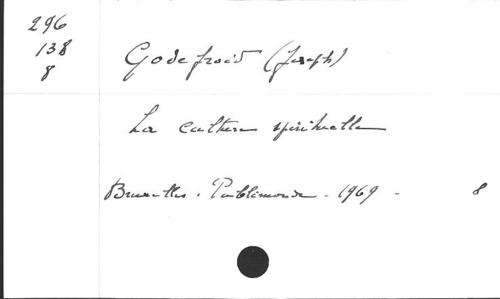 296
138
8
Godefroid (Joseph)
La culture spirituelle
Bruxelles. Publimonde - 1969 - 8